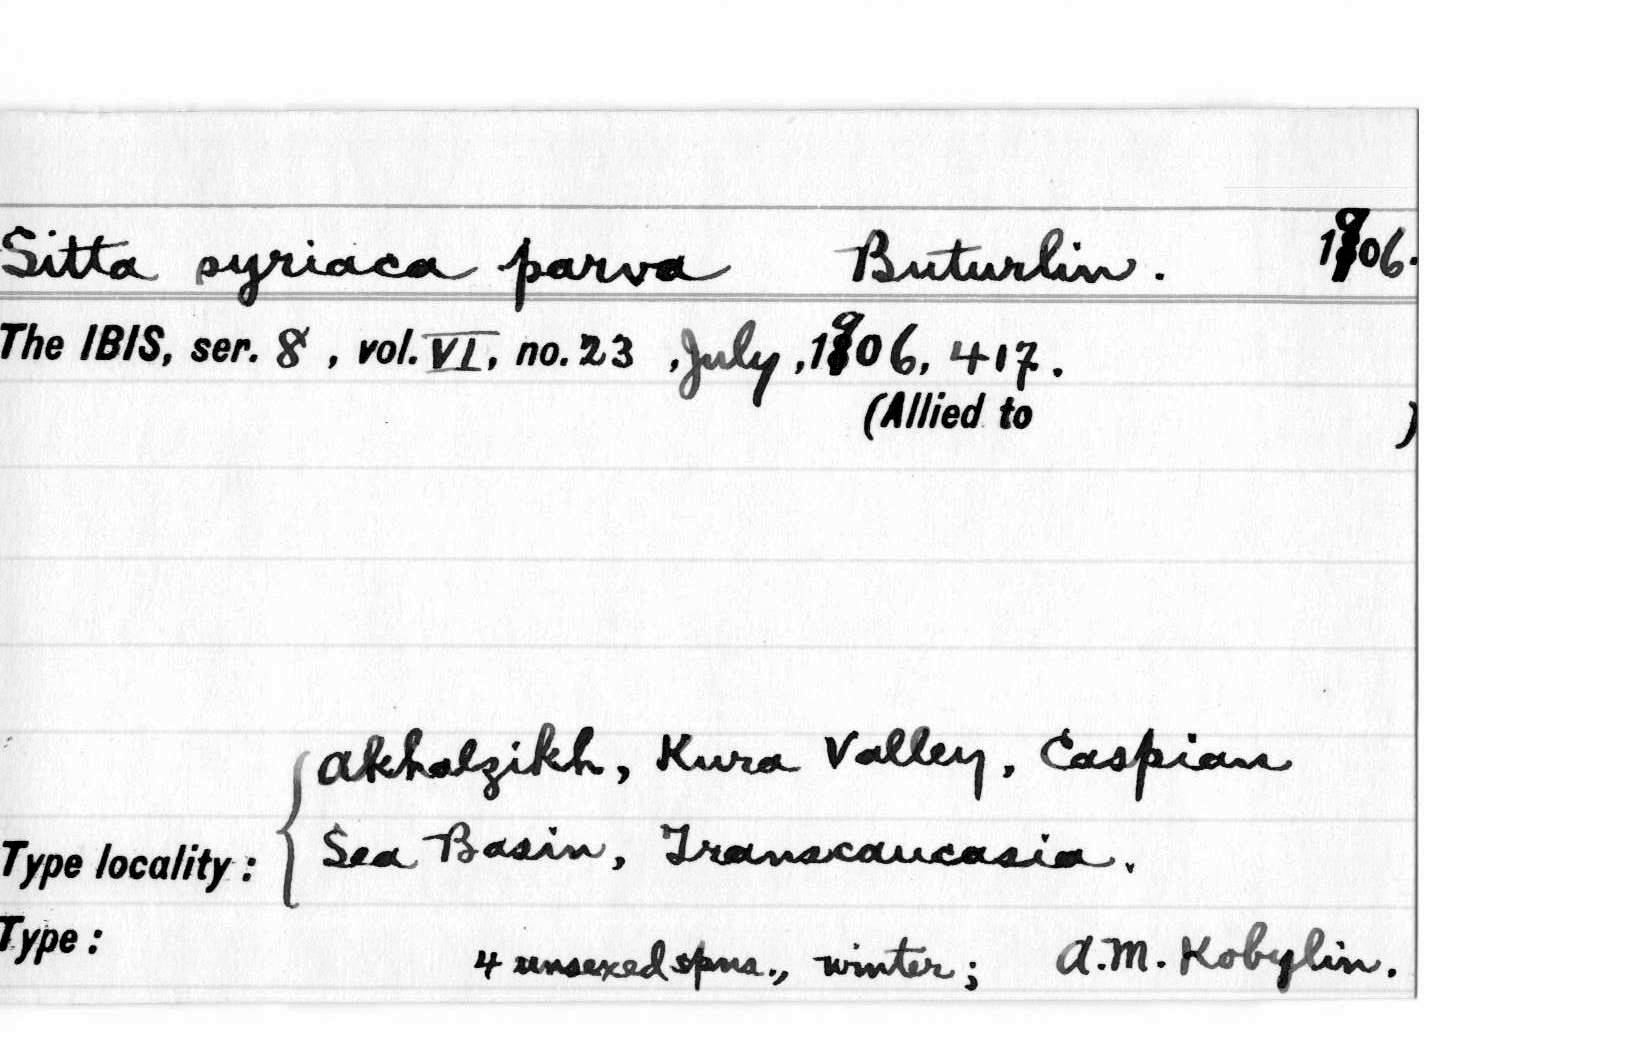 Sitta syriaca parva Buturlin. 1906.
The IBIS, ser. 8, vol. VI, no. 23, July, 1906, 417.
(Allied to )
Akhalzikh, Kura Valley, Caspian
Type locality: { Sea Basin, Transcaucasia.
Type:
4 unsexed spns., winter; A.M. Kobylin.